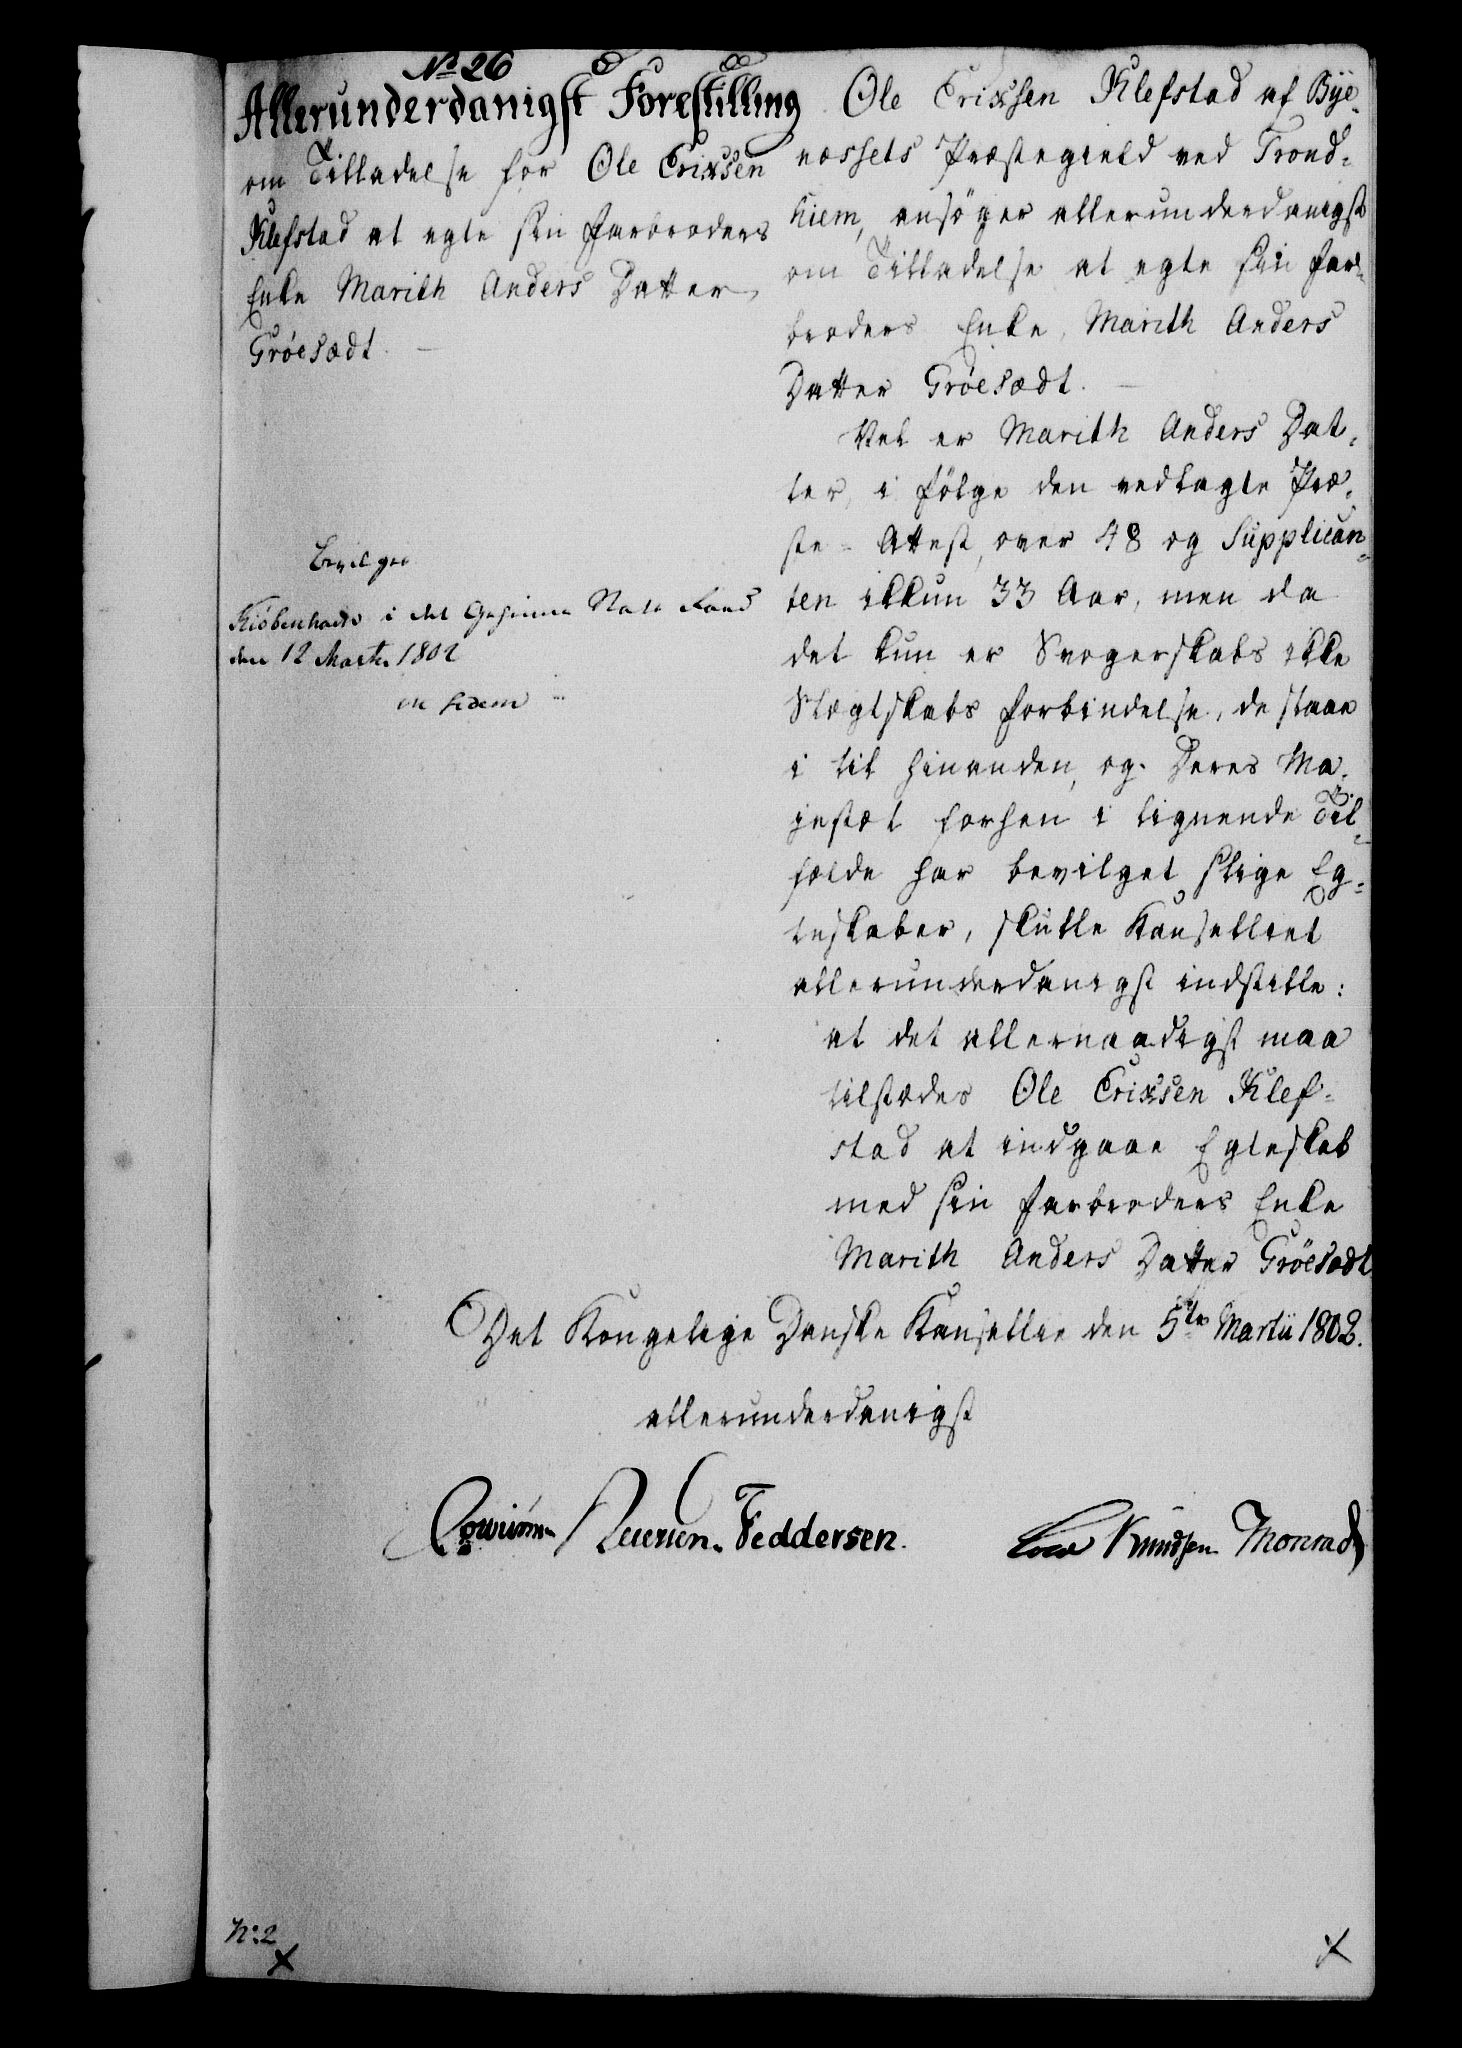 No 26
Allerunderdanigst Forestilling
om Tilladelse for Ole Erixsen
Klefstad at egte sin Farbroders
Enke Marith Anders Datter
Grøesædt.
Bevilges
Kiöbenhavn i det Geheime Stats Raad
den 12 Martii 1802
in fidem
Ole Erixsen Klefstad af Bye-
næssets Præstegield ved Trond-
hiem, ansöger allerunderdanigst
om Tilladelse at egte sin Far-
broders Enke, Marith Anders
Datter Grøesædt.
Vel er Marith Anders Dat-
ter, i fölge den vedlagte Præ-
ste-Attest, over 48 og Supplican-
ten ikkun 33 Aar, men da
det kun er Svogerskabs ikke
Slægtskabs Forbindelse, de staae
i til hinanden, og Deres Ma-
jestæt forhen i lignende Til-
fælde har bevilget slige Eg-
teskaber, skulle Kanselliet
allerunderdanigst indstille:
at det allernaadigst maa
tilstædes Ole Erixsen Klef-
stad at indgaae Egteskab
med sin Farbroders Enke
Marith Anders Datter Gröesædt
Det Kongelige Danske Kansellie den 5te Martii 1802.
allerunderdanigst
Feddersen. Knudsen Monrad
No: 2